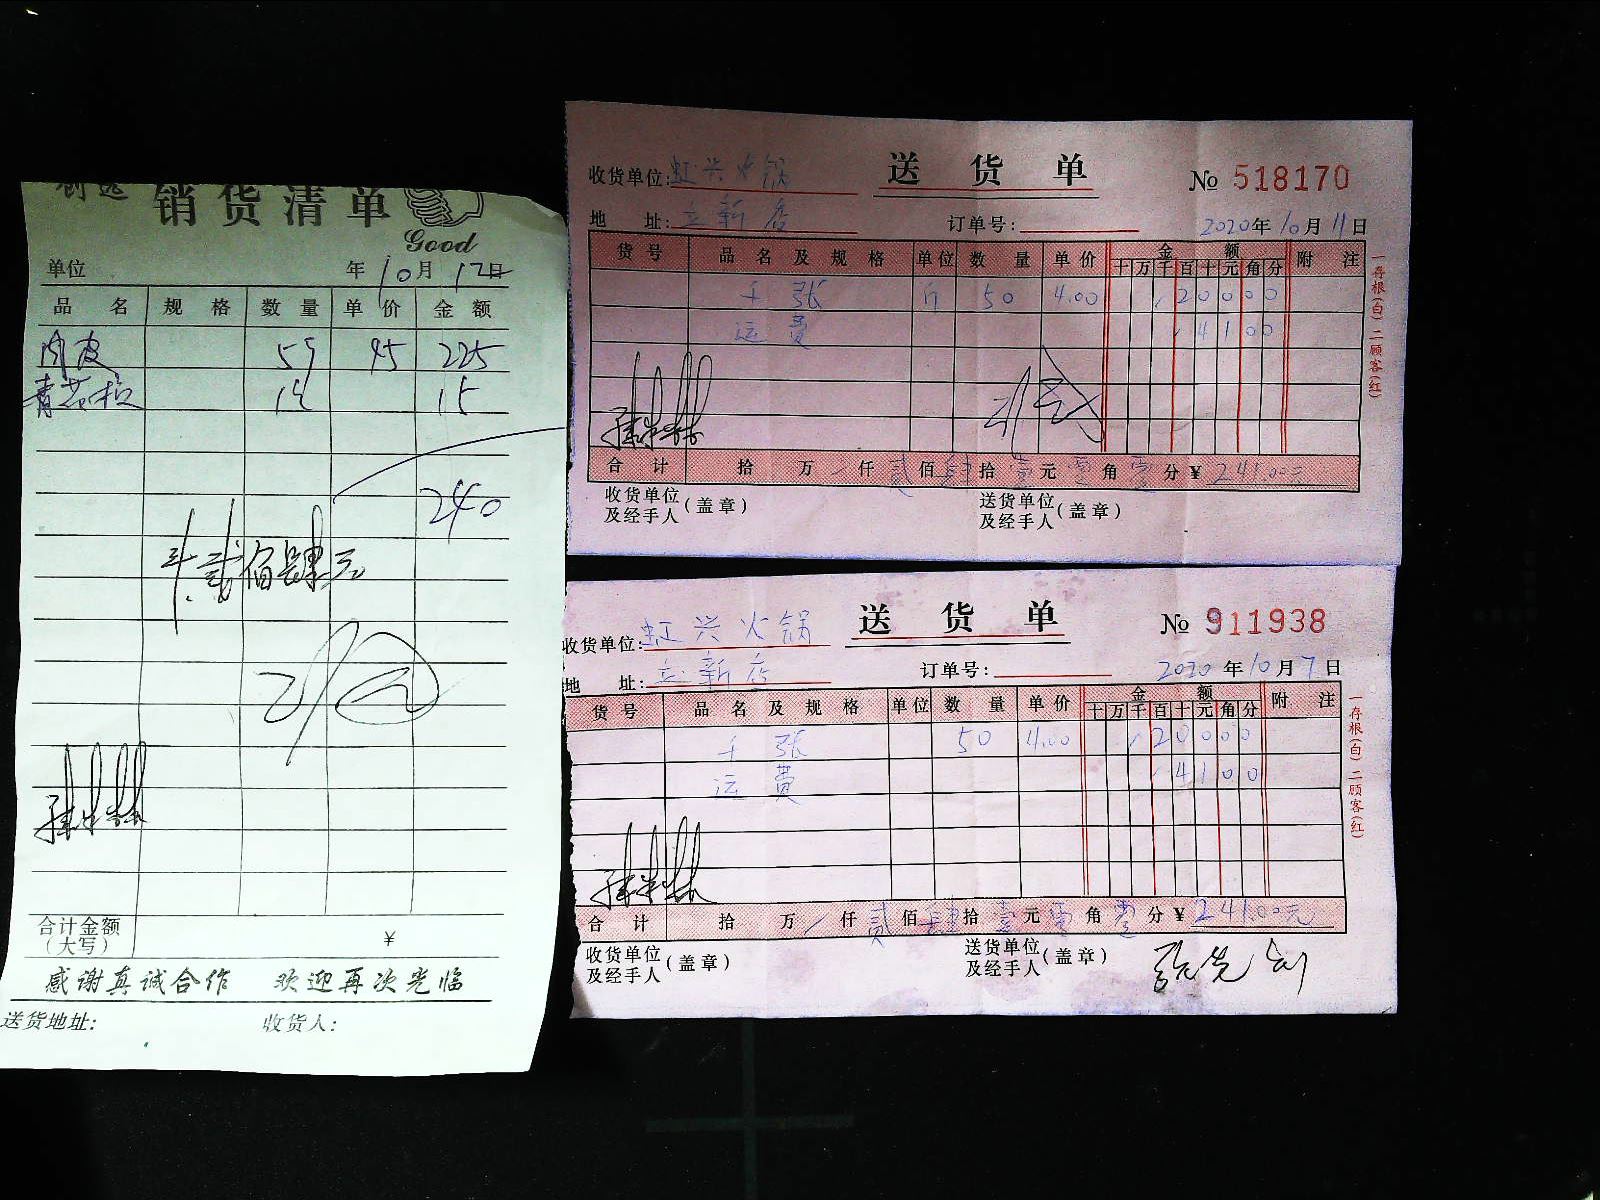 销货清单
Good
单位 年10月12日
品名 规格 数量 单价 金额
肉皮 5斤 45 225
青花椒 1斤 15
240
贰佰肆元
合计金额(大写) ¥
感谢真诚合作 欢迎再次光临
送货地址: 收货人:
送货单
收货单位:虹兴火锅 № 518170
地址:立新店 订单号: 2020年10月11日
货号 品名及规格 单位 数量 单价 金额 附注
十万千百十元角分
千张 斤 50 4.00 20000
运费 4100
合计 拾万/仟贰佰肆拾壹元零角零分 ¥241.00元
收货单位及经手人(盖章) 送货单位及经手人(盖章)
一存根(白)二顾客(红)
送货单
收货单位:虹兴火锅 № 911938
地址:立新店 订单号: 2020年10月7日
货号 品名及规格 单位 数量 单价 金额 附注
十万千百十元角分
千张 50 4.00 20000
运费 4100
合计 拾万/仟贰佰肆拾壹元零角零分 ¥241.00元
收货单位及经手人(盖章) 送货单位及经手人(盖章)
一存根(白)二顾客(红)